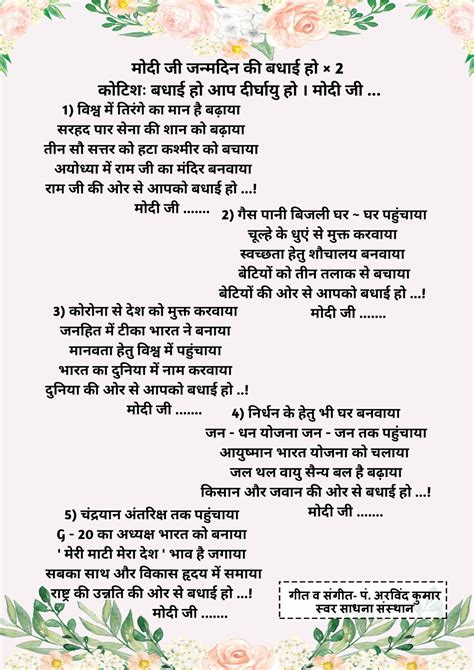 मोदी जी जन्मदिन की बधाई हो × 2
कोटिशः बधाई हो आप दीर्घायु हो । मोदी जी ...
1) विश्व में तिरंगे का मान है बढ़ाया
सरहद पार सेना की शान को बढ़ाया
तीन सौ सत्तर को हटा कश्मीर को बचाया
अयोध्या में राम जी का मंदिर बनवाया
राम जी की ओर से आपको बधाई हो ...!
मोदी जी .......
2) गैस पानी बिजली घर ~ घर पहुंचाया
चूल्हे के धुएं से मुक्त करवाया
स्वच्छता हेतु शौचालय बनवाया
बेटियों को तीन तलाक से बचाया
बेटियों की ओर से आपको बधाई हो ...!
मोदी जी .......
3) कोरोना से देश को मुक्त करवाया
जनहित में टीका भारत ने बनाया
मानवता हेतु विश्व में पहुंचाया
भारत का दुनिया में नाम करवाया
दुनिया की ओर से आपको बधाई हो ..!
मोदी जी .......
4) निर्धन के हेतु भी घर बनवाया
जन - धन योजना जन - जन तक पहुंचाया
आयुष्मान भारत योजना को चलाया
जल थल वायु सैन्य बल है बढ़ाया
किसान और जवान की ओर से बधाई हो ...!
मोदी जी .......
5) चंद्रयान अंतरिक्ष तक पहुंचाया
G - 20 का अध्यक्ष भारत को बनाया
' मेरी माटी मेरा देश ' भाव है जगाया
सबका साथ और विकास हृदय में समाया
राष्ट्र की उन्नति की ओर से बधाई हो ...!
मोदी जी .......
गीत व संगीत- पं. अरविंद कुमार
स्वर साधना संस्थान